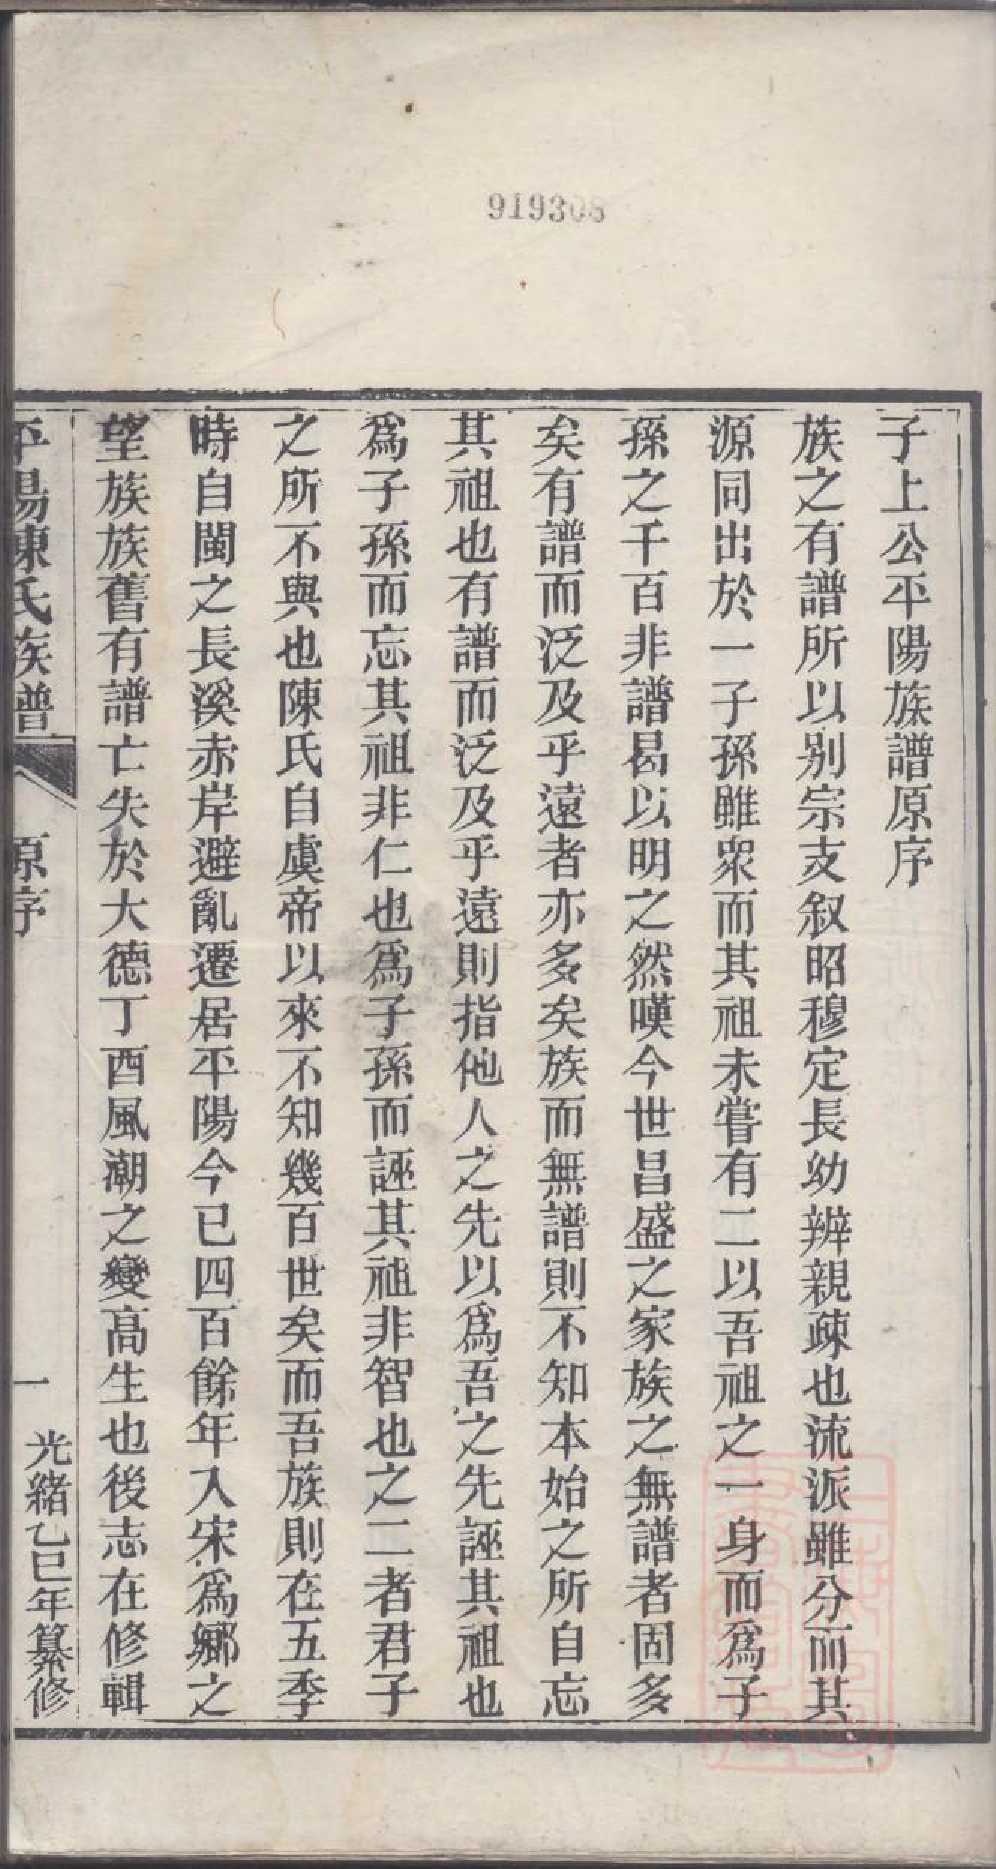 919308
子上公平陽族譜原序
族之有譜所以别宗支叙昭穆定長幼辨親疎也流派雖分而其
源同出於一子孫雖衆而其祖未嘗有二以吾祖之一身而爲子
孫之千百非譜曷以明之然嘆今世昌盛之家族之無譜者固多
矣有譜而泛及乎遠者亦多矣族而無譜則不知本始之所自忘
其祖也有譜而泛及乎遠則指他人之先以爲吾之先誣其祖也
爲子孫而忘其祖非仁也爲子孫而誣其祖非智也之二者君子
之所不與也陳氏自虞帝以來不知幾百世矣而吾族則在五季
時自閩之長溪赤岸避亂遷居平陽今已四百餘年入宋爲鄉之
望族族舊有譜亡失於大德丁酉風潮之變高生也後志在修輯
平陽陳氏族譜 原序 一 光緒乙巳年纂修